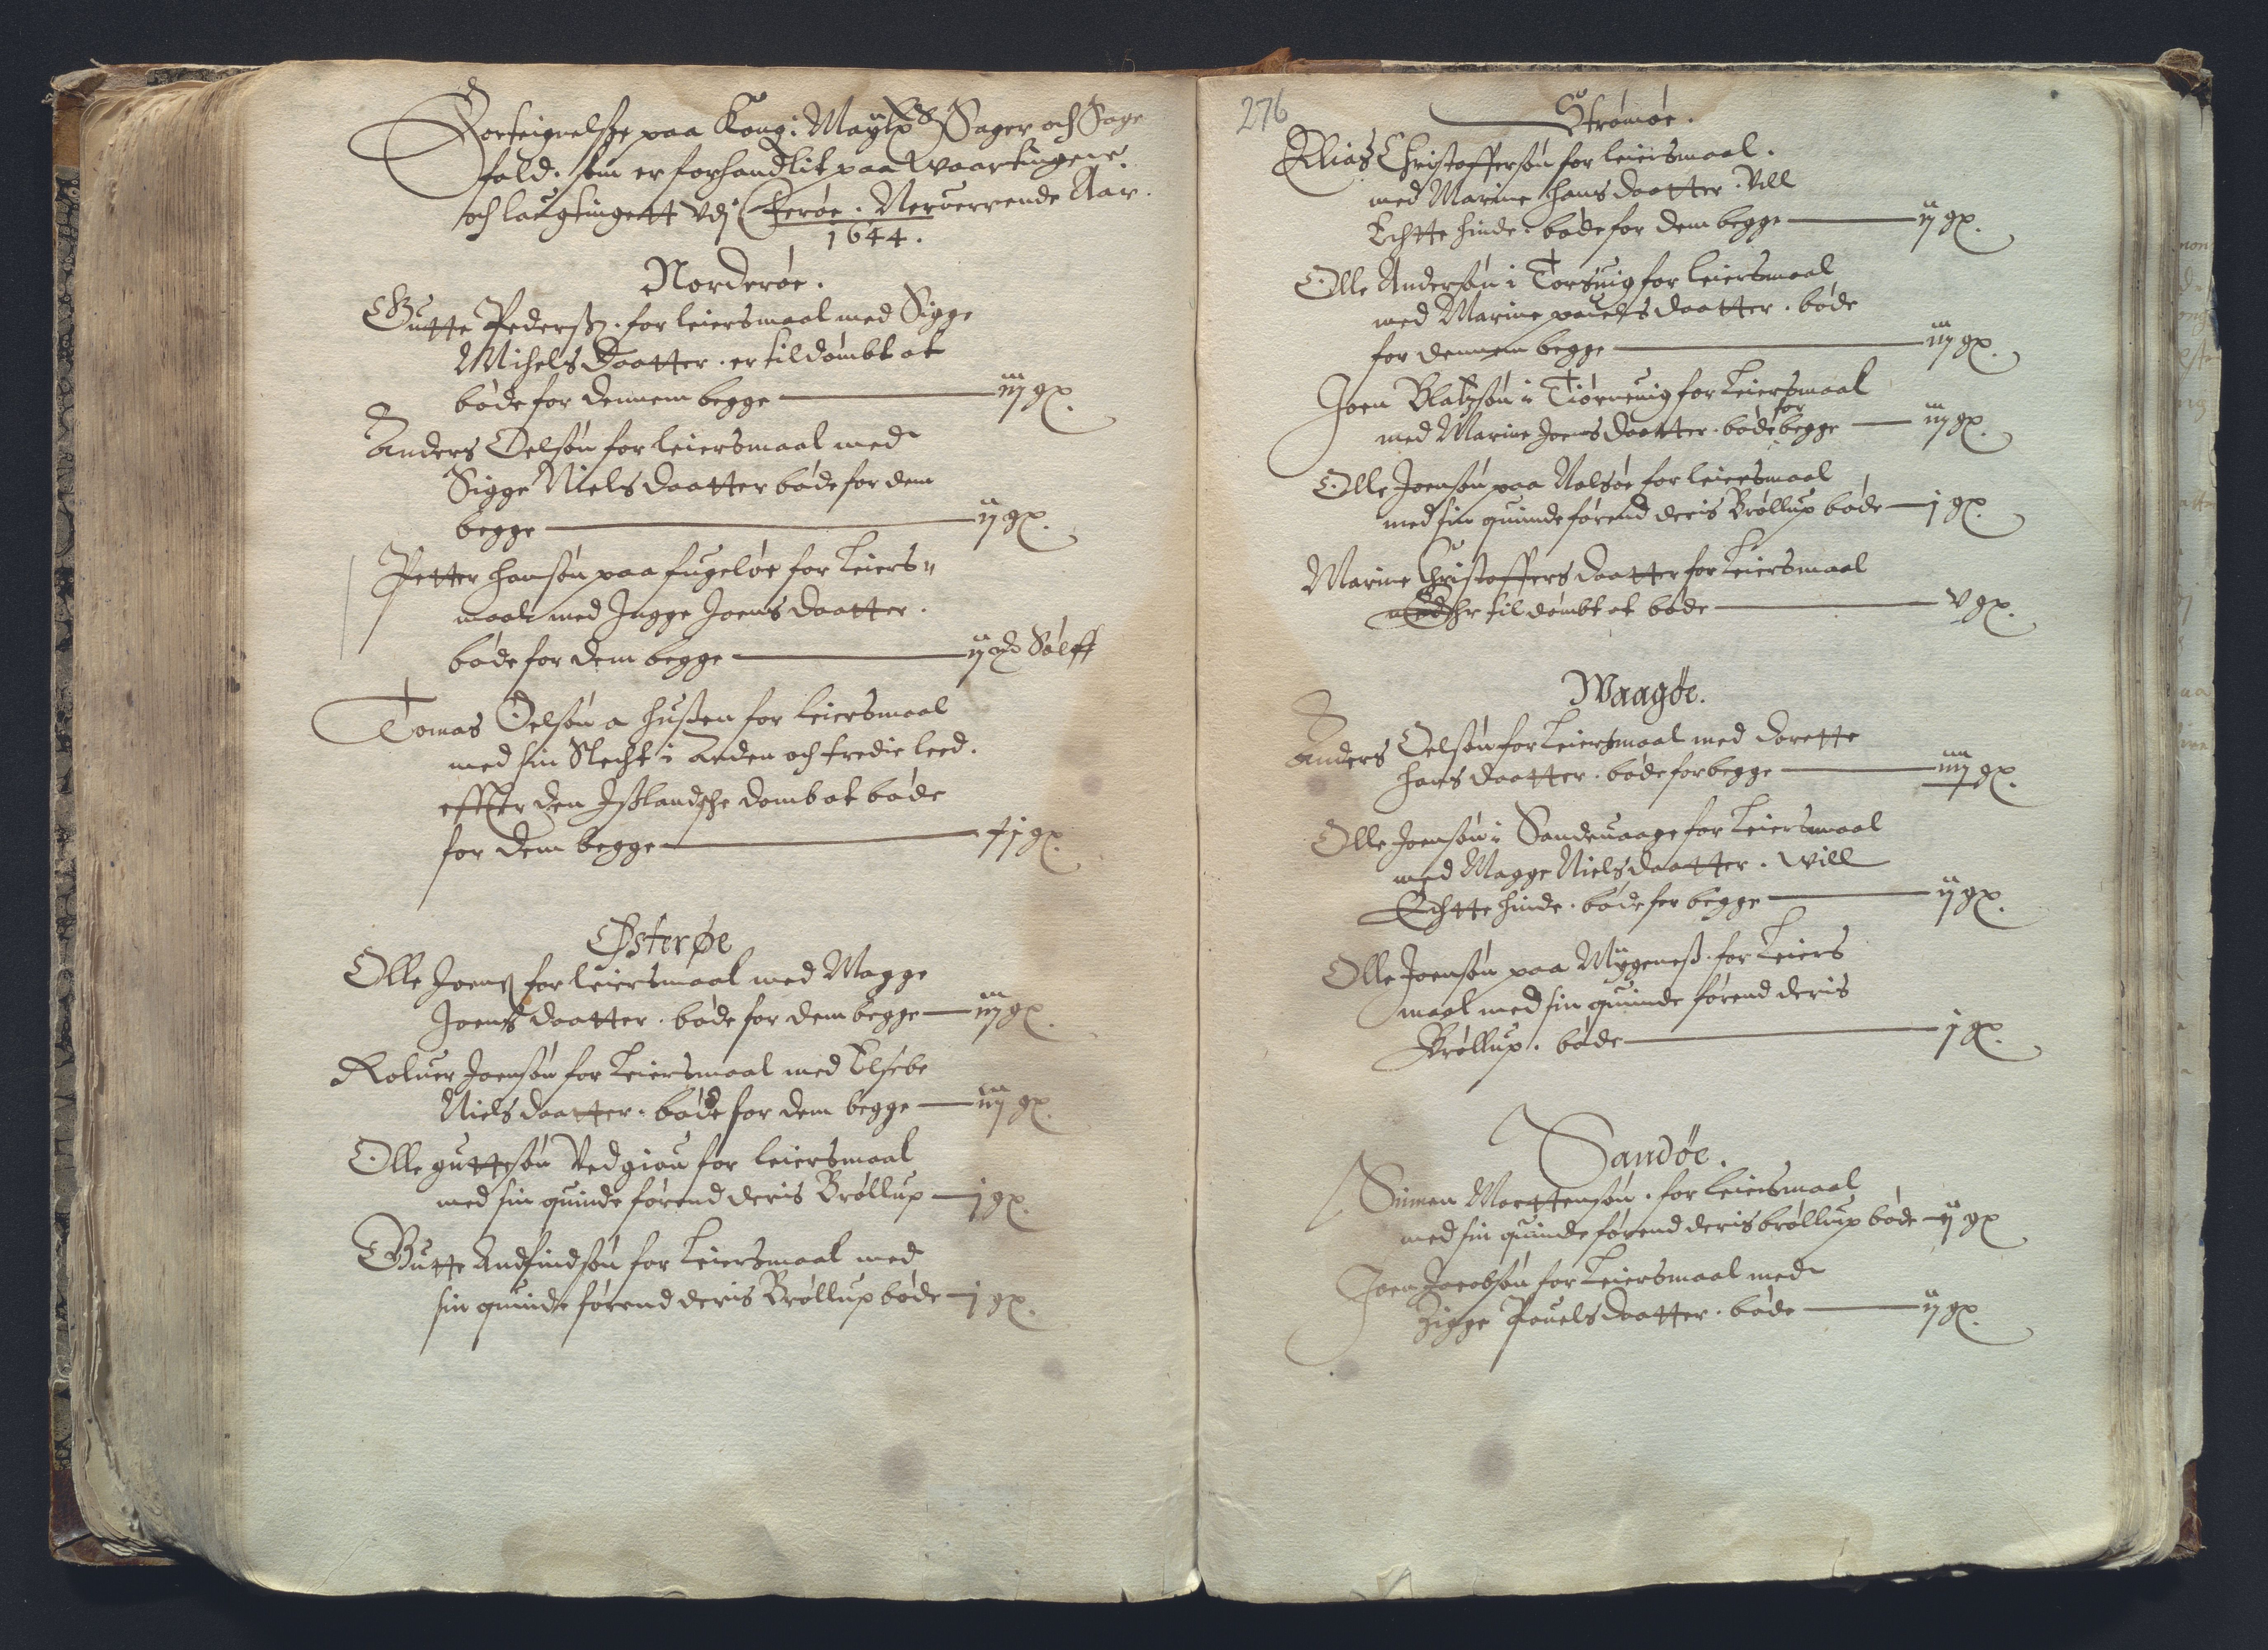 Forteignelsze paa Kong: Maytz Sager och Sage
fald. som er forhandlit paa Waartingene.
och laugtingett Vdj Ferøe. Nerverrende Aar.
1644.
Norderøe.
Gutte Pederß. for leiersmaal med Sigge
Michels Daatter. er tildømbt at
bøde for dennem begge iij gx.
Anders Oelsøn for leiersmaal med
Sigge Niels daatter bøde for dem
begge ij gx.
Petter hansøn paa fugeløe for Leiers
maal med Ingge Joens daatter.
bøde for dem begge ij Sølff
Tomas Oelsøn a hußen for leiersmaal
med sin Slecht i Anden och tredie leed.
effter den Ißlandsche domb at bøde
for dem begge gx.
Østerøe
Olle Joenß for leiersmaal med Magge
Joens daatter. bøde for dem begge iij gx.
Roluer Joensøn for Leiersmaal med Elsebe
Niels daatter. bøde for dem begge iij gx.
Olle guttesøn Ved giou for leiersmaal
med sin quinde førend deris Brøllup j gx.
Gutte Andfindsøn for Leiersmaal med
sin quinde førend deris Brøllup bøde j gx.
276
Strømøe.
Elias Christoffersøn for leiersmaal.
med Marine hans daatter. Vill
Echtte hinde. bøde for dem begge ij gx.
Olle Andersøn i Torsuig for leiersmaal
med Marine pouels daatter. bøde
for dennem begge iij gx.
Joen Blatzsøn i Tiørneuig for Leiersmaal
med Marine Joens daatter. bøde for begge iij gx.
Olle Joensøn paa Nolsøe for leiersmaal
med sin quinde førend deris Brøllup bøde j gx.
Marine Christoffers daatter for Leiersmaal
Er tildømbt at bøde V gx.
Waagøe.
Anders Oelsøn for Leiersmaal med dorette
hans daatter. bøde for begge iiij gx.
Olle Joensøn i Sandeuaage for Leiersmaal
med Magge Niels daatter. Will
Echtte hinde. bøde for begge ij gx.
Olle Joensøn paa Mygeneß. for Leiers
maal med sin quinde førend deris
Brøllup. bøde j gx.
Sandøe.
Simen Morttensøn. for leiersmaal
med sin quinde førend deris brøllup bøde ij gx
Joen Jacobsøn for Leiersmaal med
Zigge Pouels daatter. bøde ij gx.